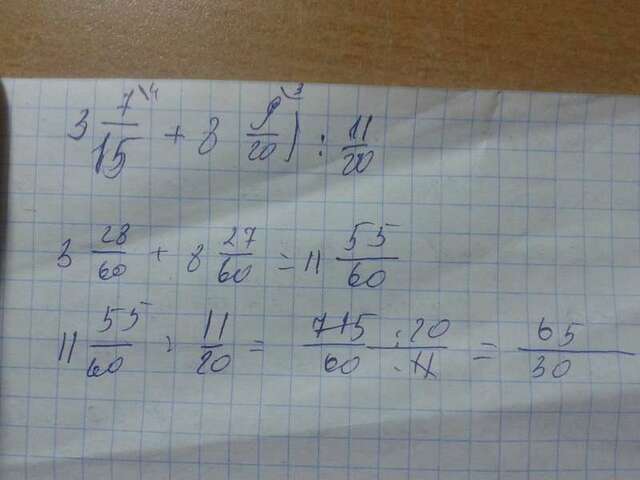 3 7\4/15 + 8 9\3/20 ) : 11/20
3 28/60 + 8 27/60 = 11 55/60
11 55/60 : 11/20 = 715/60 · 20/11 = 65/30